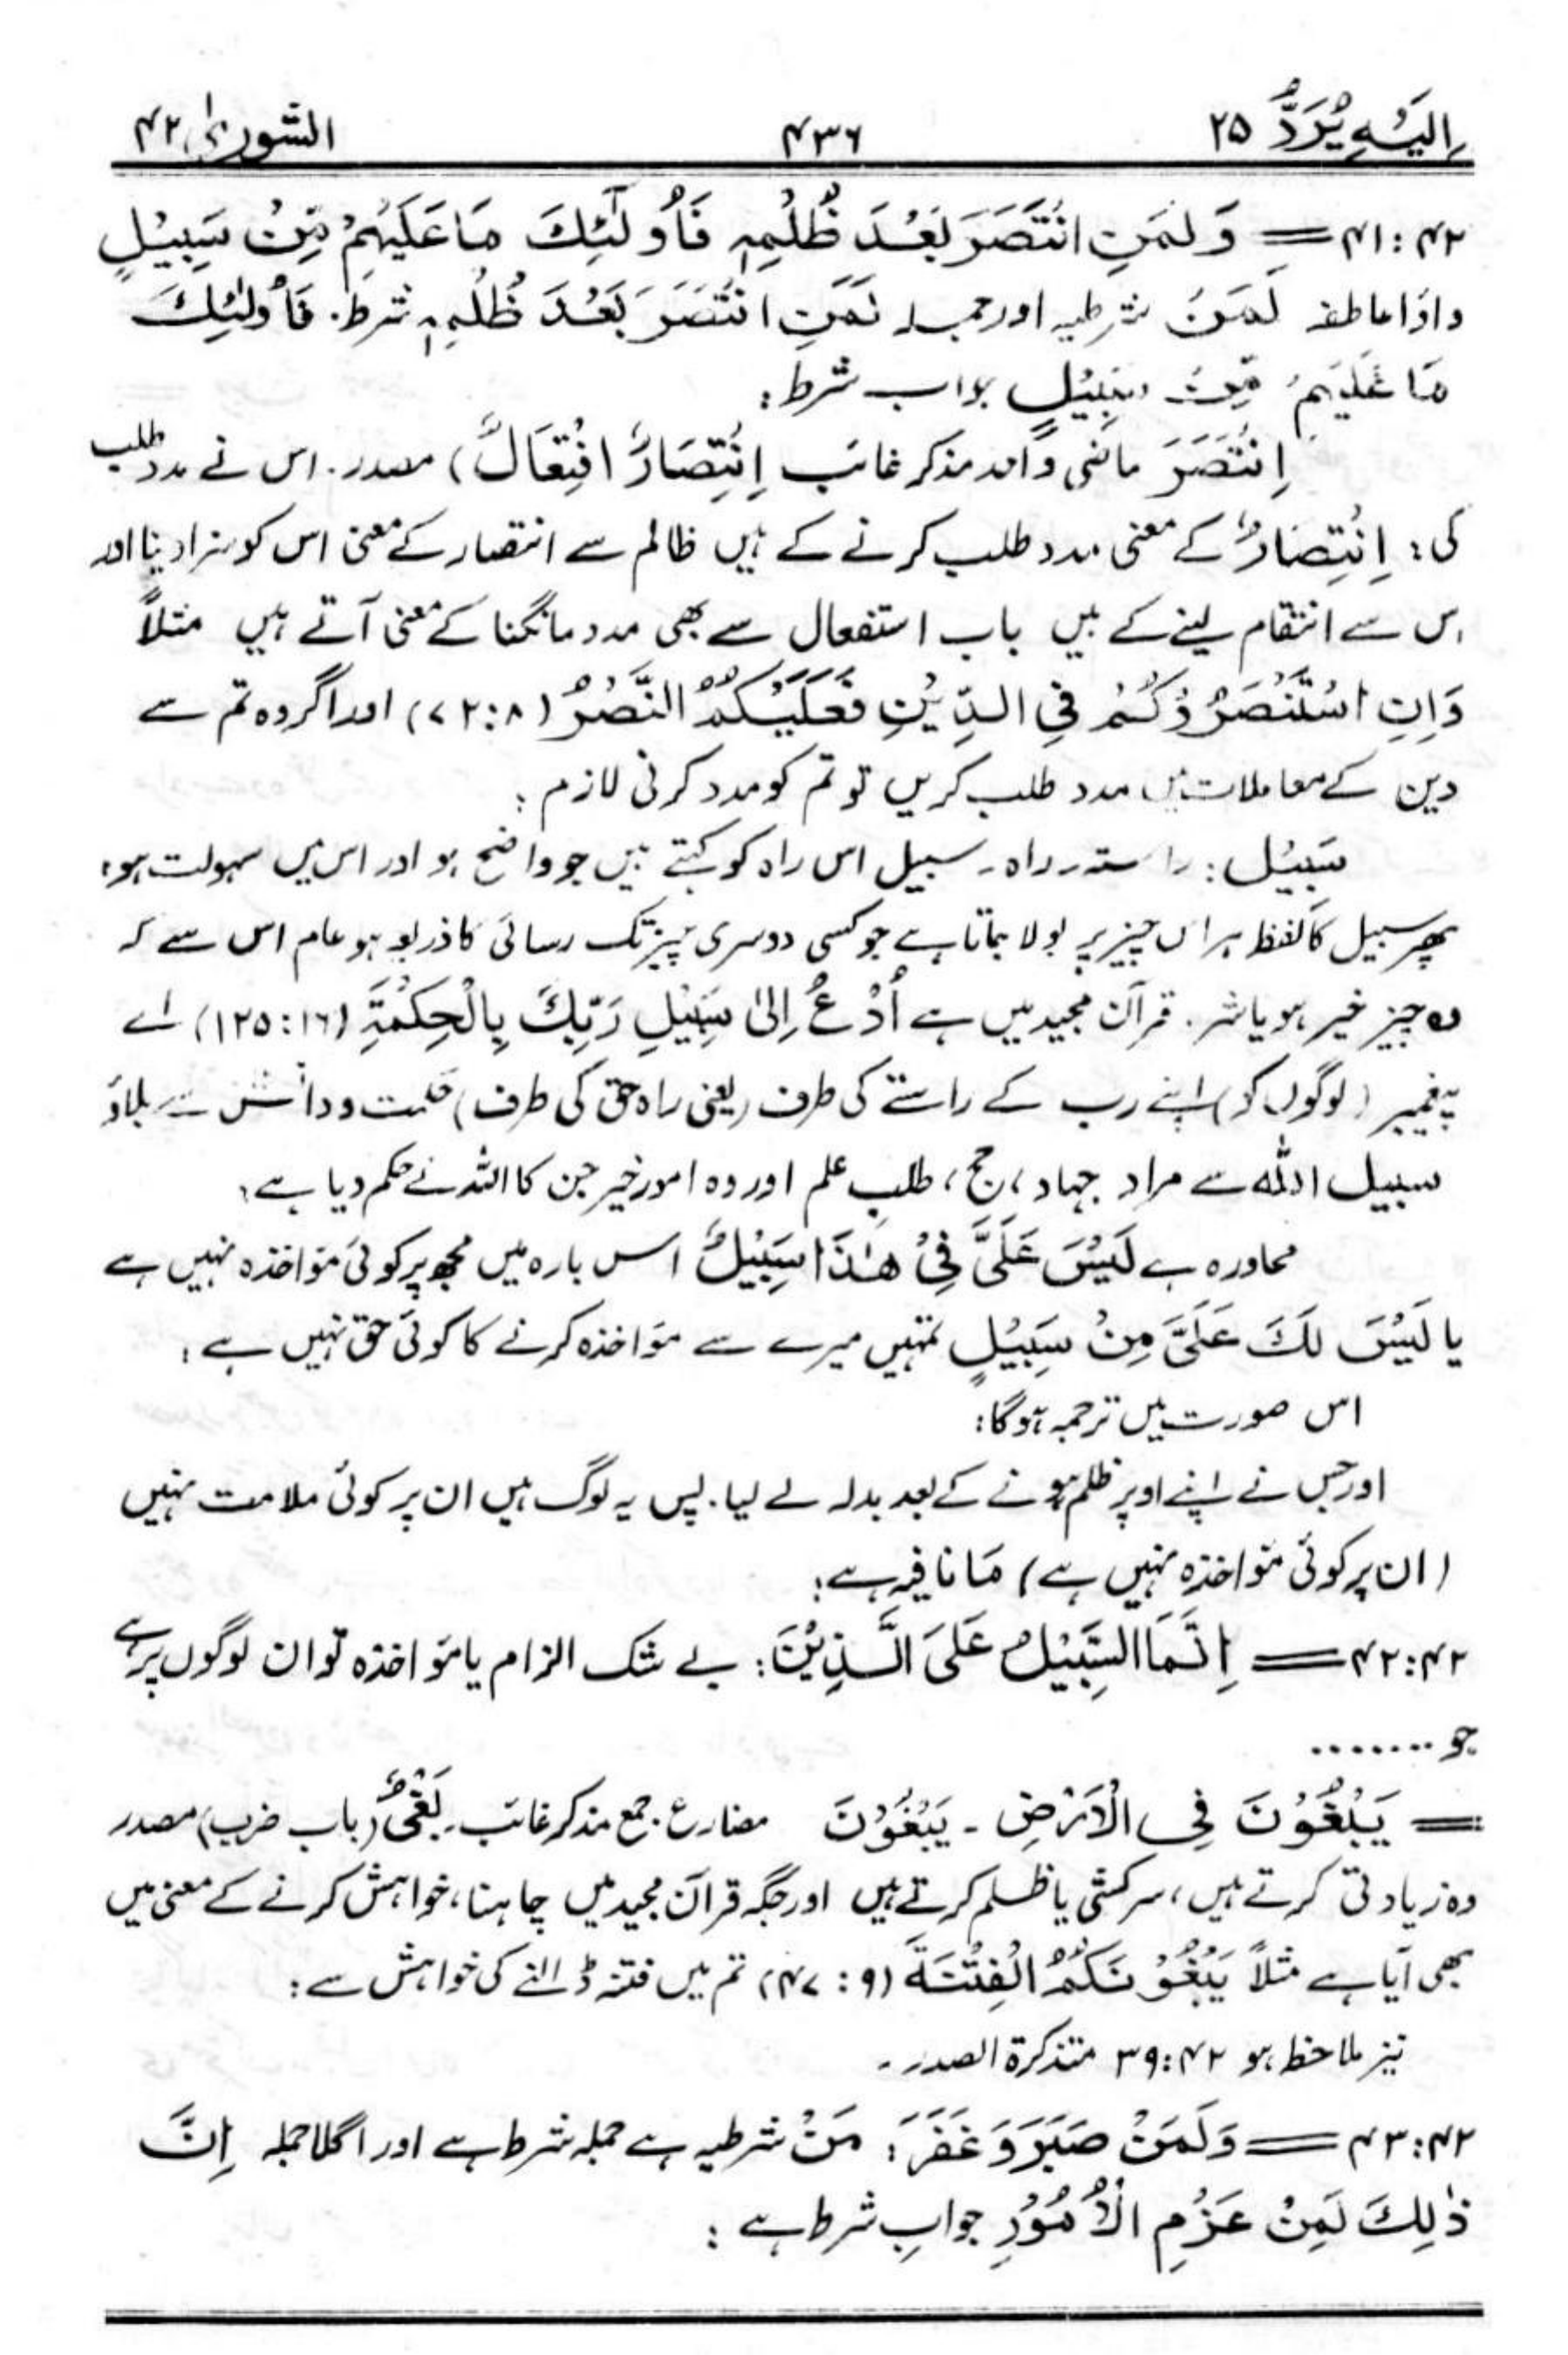 اِلَیْهِ یُرَدُّ ۲۵ ۴۳۶ الشوریٰ ۴۲
۴۲:۴۱ = وَلَمَنِ انْتَصَرَ بَعْدَ ظُلْمِهٖ فَاُولٰٓئِكَ مَا عَلَیْهِمْ مِّنْ سَبِیْلٍ
واؤ عاطفہ لَمَنْ شرطیہ اور جملہ لَمَنِ انْتَصَرَ بَعْدَ ظُلْمِهٖ شرط۔ فَاُولٰٓئِكَ
مَا عَلَیْهِمْ مِّنْ سَبِیْلٍ جواب شرط:
اِنْتَصَرَ ماضی واحد مذکر غائب اِنْتِصَارٌ افْتِعَالٌ) مصدر۔ اس نے مدد طلب
کی: اِنْتِصَارٌ کے معنی مدد طلب کرنے کے ہیں ظالم سے انتصار کے معنی اس کو سزا دینا اور
اس سے انتقام لینے کے ہیں باب استفعال سے بھی مدد مانگنا کے معنی آتے ہیں مثلاً
وَاِنِ اسْتَنْصَرُوْكُمْ فِی الدِّیْنِ فَعَلَیْكُمُ النَّصْرُ (۸:۷۲) اور اگر وہ تم سے
دین کے معاملات میں مدد طلب کریں تو تم کو مدد کرنی لازم :
سَبِیْل: راستہ۔ راہ۔ سبیل اس راہ کو کہتے ہیں جو واضح ہو اور اس میں سہولت ہو،
پھر سبیل کا لفظ ہر اس چیز پر بولا جاتا ہے جو کسی دوسری چیز تک رسائی کا ذریعہ ہو عام اس سے کہ
وہ چیز خیر ہو یا شر۔ قرآن مجید میں ہے اُدْعُ اِلٰى سَبِیْلِ رَبِّكَ بِالْحِكْمَةِ (۱۶:۱۲۵) اے
پیغمبر (لوگوں کو) اپنے رب کے راستے کی طرف (یعنی راہ حق کی طرف) حکمت و دانش سے بلاؤ
سبیل اللّٰہ سے مراد جہاد، حج، طلبِ علم اور وہ امور خیر جن کا اللہ نے حکم دیا ہے،
محاورہ ہے لَیْسَ عَلَیَّ فِیْ هٰذَا سَبِیْلٌ اس بارہ میں مجھ پر کوئی مؤاخذہ نہیں ہے
یا لَیْسَ لَكَ عَلَیَّ مِنْ سَبِیْلٍ تمہیں میرے سے مؤاخذہ کرنے کا کوئی حق نہیں ہے :
اس صورت میں ترجمہ ہوگا:
اور جس نے اپنے اوپر ظلم ہونے کے بعد بدلہ لے لیا۔ پس یہ لوگ ہیں ان پر کوئی ملامت نہیں
(ان پر کوئی مؤاخذہ نہیں ہے) مَا نافیہ ہے:
۴۲:۴۲ = اِنَّمَا السَّبِیْلُ عَلَى الَّذِیْنَ: بے شک الزام یا مؤاخذہ تو ان لوگوں پر ہے
جو ........
= یَبْغُوْنَ فِی الْاَرْضِ ۔ یَبْغُوْنَ مضارع جمع مذکر غائب۔ بَغْیٌ (باب ضرب) مصدر
وہ زیادتی کرتے ہیں، سرکشی یا ظلم کرتے ہیں اور جگہ قرآن مجید میں چاہنا، خواہش کرنے کے معنی میں
بھی آیا ہے مثلاً یَبْغُوْنَكُمُ الْفِتْنَةَ (۹: ۴۷) تم میں فتنہ ڈالنے کی خواہش سے:
نیز ملاحظہ ہو ۴۲:۳۹ متذکرۃ الصدر۔
۴۲:۴۳ = وَلَمَنْ صَبَرَ وَغَفَرَ: مَنْ شرطیہ ہے جملہ شرط ہے اور اگلا جملہ اِنَّ
ذٰلِكَ لَمِنْ عَزْمِ الْاُمُوْرِ جوابِ شرط ہے :